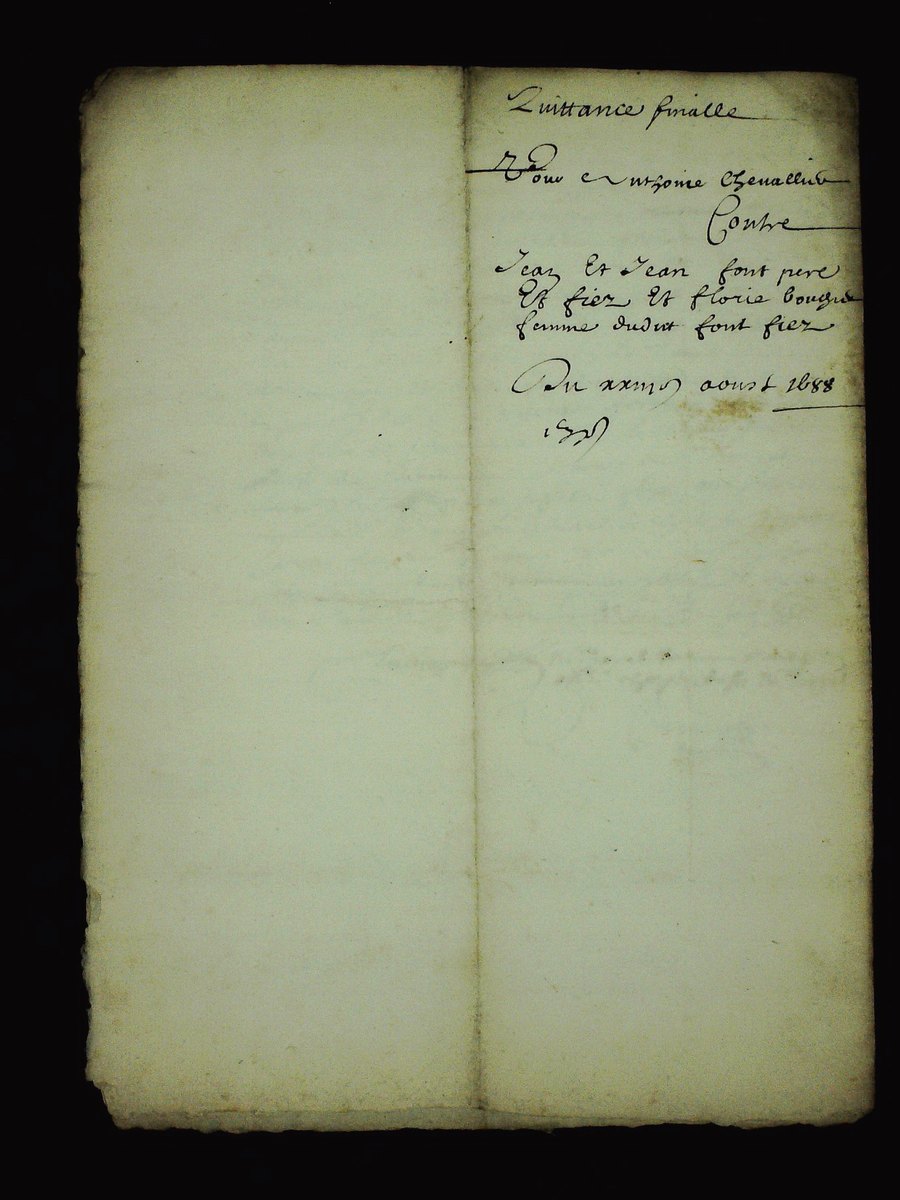 Quittance finalle
Pour Anthoine Chevallier
Contre
Jean Et Jean font pere
Et fiez Et florie
femme dudit font fiez
Du aoust 1688